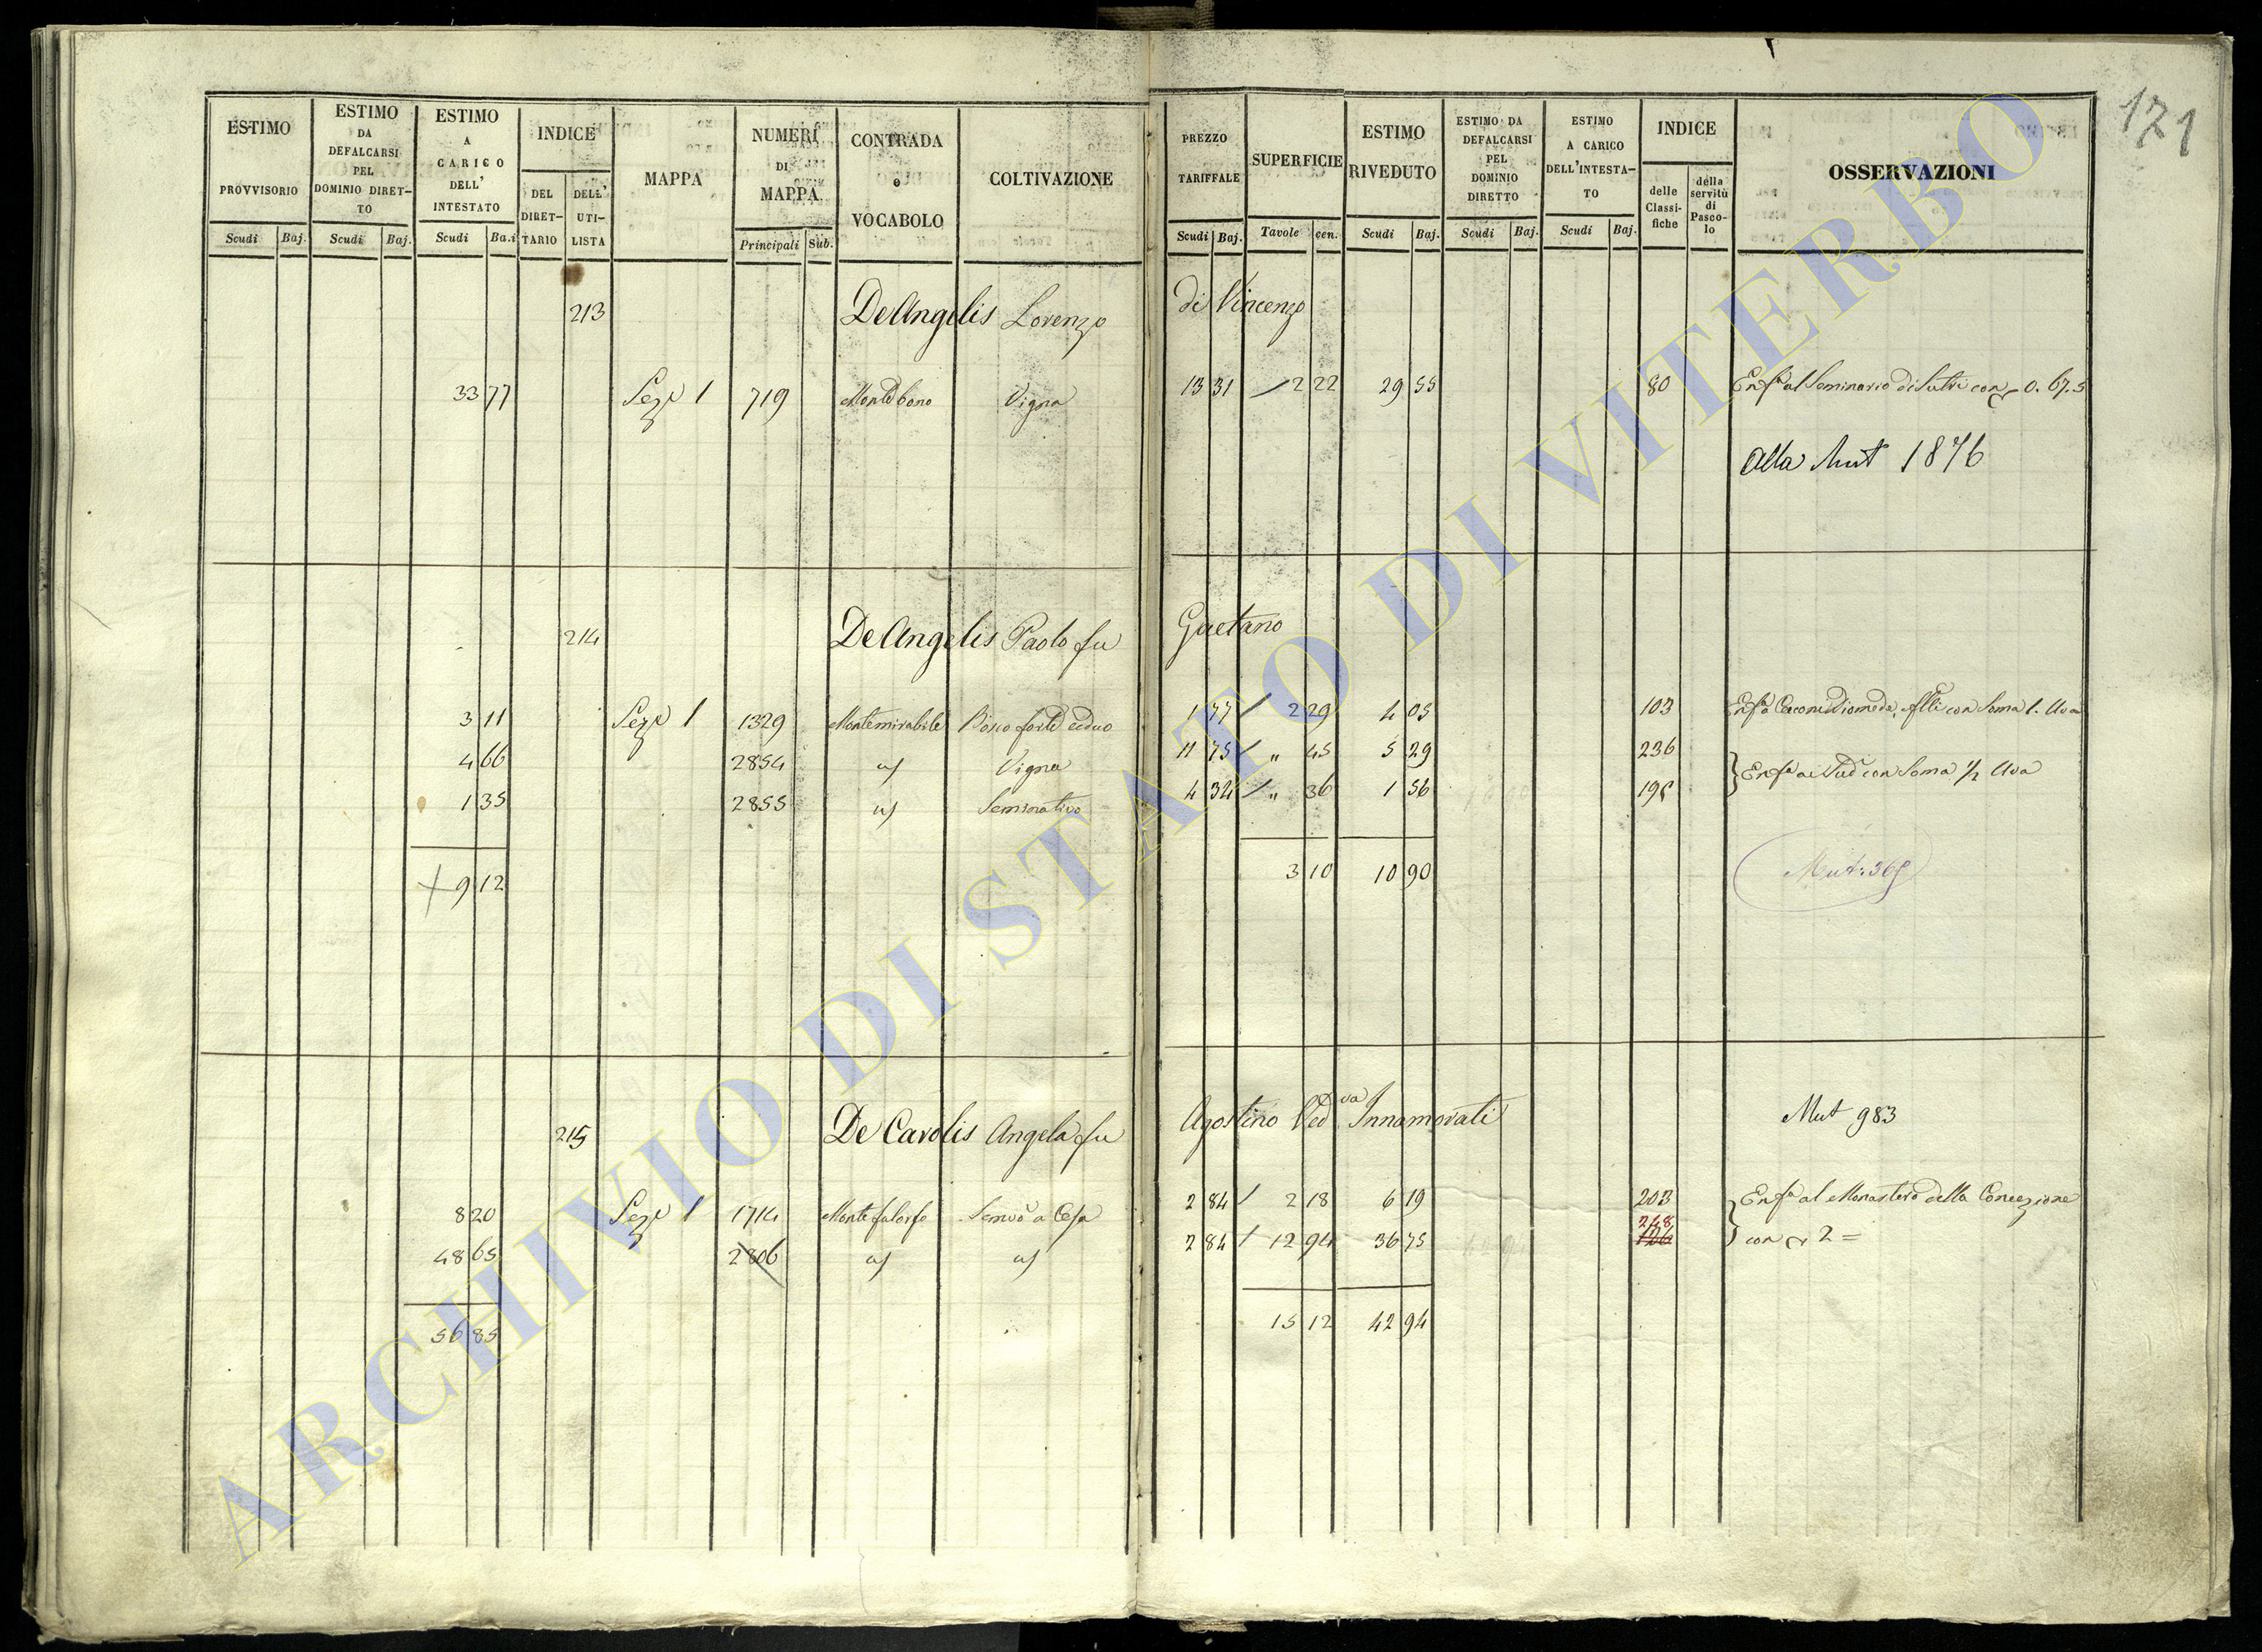 171
ESTIMO PROVVISORIO Scudi Baj.
ESTIMO DA DEFALCARSI PEL DOMINIO DIRET-TO Scudi Baj.
ESTIMO A CARICO DELL' INTESTATO Scudi Ba.i
INDICE DEL DIRET-TARIO DELL' UTI-LISTA
MAPPA
NUMERI DI MAPPA. Principali Sub.
CONTRADA o VOCABOLO
COLTIVAZIONE
PREZZO TARIFFALE Scudi Baj.
SUPERFICIE Tavole cen.
ESTIMO RIVEDUTO Scudi Baj.
ESTIMO DA DEFALCARSI PEL DOMINIO DIRETTO Scudi Baj.
ESTIMO A CARICO DELL'INTESTA-TO Scudi Baj.
INDICE delle Classi-fiche della servitù di Pasco-lo
OSSERVAZIONI
213 DeAngelis Lorenzo di Vincenzo
33 77 Seze 1 719 Vigna 13 31 / 2 22 29 55 80 Enfa al Seminario di Sutri con 0. 67.5
Alla Mut 1876
214 DeAngelis Paolo fu Gaetano
3 11 Seze 1 1329 Montemirabile Bosco forte ceduo 1 77 / 2 29 4 05 103 Enfa con Soma 1. Uva
4 66 2854 Vigna 11 75 / " 45 5 29 236
1 35 2855 Seminativo 4 34 / " 36 1 56 195 Enfa ai Sud con Soma 1/2 Uva
9 12 3 10 10 90 Mut. 369
215 De Carolis Angela fu Agostino Ved.va Innamorati Mut 983
8 20 Seze 1 1714 2 84 / 2 18 6 19 203 Enfa al Monastero della Concezione
48 65 2806 2 84 / 12 94 36 75 248 126 con 2 =
56 85 15 12 42 94
ARCHIVIO DI STATO DI VITERBO